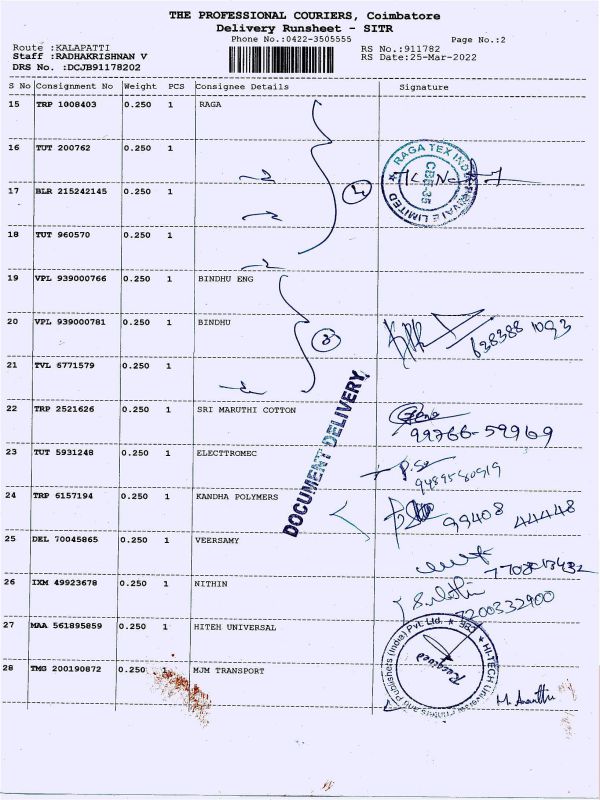 THE PROFESSIONAL COURIERS, Coimbatore
Delivery Runsheet - SITR
Phone No.:0422-3505555 Page No.:2
Route :KALAPATTI RS No.:911782
Staff :RADHAKRISHNAN V RS Date:25-Mar-2022
DRS No. :DCJB91178202
S No Consignment No Weight PCS Consignee Details Signature
15 TRP 1008403 0.250 1 RAGA
16 TUT 200762 0.250 1
RAGA TEX PRIVATE LIMITED
CBE-35
17 BLR 215242145 0.250 1
18 TUT 960570 0.250 1
19 VPL 939000766 0.250 1 BINDHU ENG
20 VPL 939000781 0.250 1 BINDHU
638388 1093
21 TVL 6771579 0.250 1
DOCUMENT DELIVERY
22 TRP 2521626 0.250 1 SRI MARUTHI COTTON
99766-59969
23 TUT 5931248 0.250 1 ELECTTROMEC
24 TRP 6157194 0.250 1 KANDHA POLYMERS
99408 44448
25 DEL 70045865 0.250 1 VEERSAMY
26 IXM 49923678 0.250 1 NITHIN
7200332900
27 MAA 561895859 0.250 1 HITEH UNIVERSAL
HI-TECH Publishers (India) Pvt. Ltd. ★ CBE
Received
28 TMG 200190872 0.250 1 MJM TRANSPORT